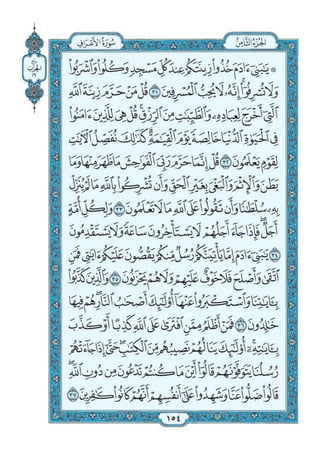 الجزء الثامن
سورة الأعراف
۞ يَٰبَنِىٓ ءَادَمَ خُذُوا۟ زِينَتَكُمْ عِندَ كُلِّ مَسْجِدٍ وَكُلُوا۟ وَٱشْرَبُوا۟
وَلَا تُسْرِفُوٓا۟ إِنَّهُۥ لَا يُحِبُّ ٱلْمُسْرِفِينَ ٣١ قُلْ مَنْ حَرَّمَ زِينَةَ ٱللَّهِ
ٱلَّتِىٓ أَخْرَجَ لِعِبَادِهِۦ وَٱلطَّيِّبَٰتِ مِنَ ٱلرِّزْقِ قُلْ هِىَ لِلَّذِينَ ءَامَنُوا۟
فِى ٱلْحَيَوٰةِ ٱلدُّنْيَا خَالِصَةً يَوْمَ ٱلْقِيَٰمَةِ كَذَٰلِكَ نُفَصِّلُ ٱلْءَايَٰتِ
لِقَوْمٍ يَعْلَمُونَ ٣٢ قُلْ إِنَّمَا حَرَّمَ رَبِّىَ ٱلْفَوَٰحِشَ مَا ظَهَرَ مِنْهَا وَمَا
بَطَنَ وَٱلْإِثْمَ وَٱلْبَغْىَ بِغَيْرِ ٱلْحَقِّ وَأَن تُشْرِكُوا۟ بِٱللَّهِ مَا لَمْ يُنَزِّلْ
بِهِۦ سُلْطَٰنًا وَأَن تَقُولُوا۟ عَلَى ٱللَّهِ مَا لَا تَعْلَمُونَ ٣٣ وَلِكُلِّ أُمَّةٍ
أَجَلٌ فَإِذَا جَآءَ أَجَلُهُمْ لَا يَسْتَأْخِرُونَ سَاعَةً وَلَا يَسْتَقْدِمُونَ
٣٤ يَٰبَنِىٓ ءَادَمَ إِمَّا يَأْتِيَنَّكُمْ رُسُلٌ مِّنكُمْ يَقُصُّونَ عَلَيْكُمْ ءَايَٰتِى فَمَنِ
ٱتَّقَىٰ وَأَصْلَحَ فَلَا خَوْفٌ عَلَيْهِمْ وَلَا هُمْ يَحْزَنُونَ ٣٥ وَٱلَّذِينَ كَذَّبُوا۟
بِـَٔايَٰتِنَا وَٱسْتَكْبَرُوا۟ عَنْهَآ أُو۟لَٰٓئِكَ أَصْحَٰبُ ٱلنَّارِ هُمْ فِيهَا
خَٰلِدُونَ ٣٦ فَمَنْ أَظْلَمُ مِمَّنِ ٱفْتَرَىٰ عَلَى ٱللَّهِ كَذِبًا أَوْ كَذَّبَ
بِـَٔايَٰتِهِۦٓ أُو۟لَٰٓئِكَ يَنَالُهُمْ نَصِيبُهُم مِّنَ ٱلْكِتَٰبِ حَتَّىٰٓ إِذَا جَآءَتْهُمْ
رُسُلُنَا يَتَوَفَّوْنَهُمْ قَالُوٓا۟ أَيْنَ مَا كُنتُمْ تَدْعُونَ مِن دُونِ ٱللَّهِ
قَالُوا۟ ضَلُّوا۟ عَنَّا وَشَهِدُوا۟ عَلَىٰٓ أَنفُسِهِمْ أَنَّهُمْ كَانُوا۟ كَٰفِرِينَ ٣٧
١٥٤